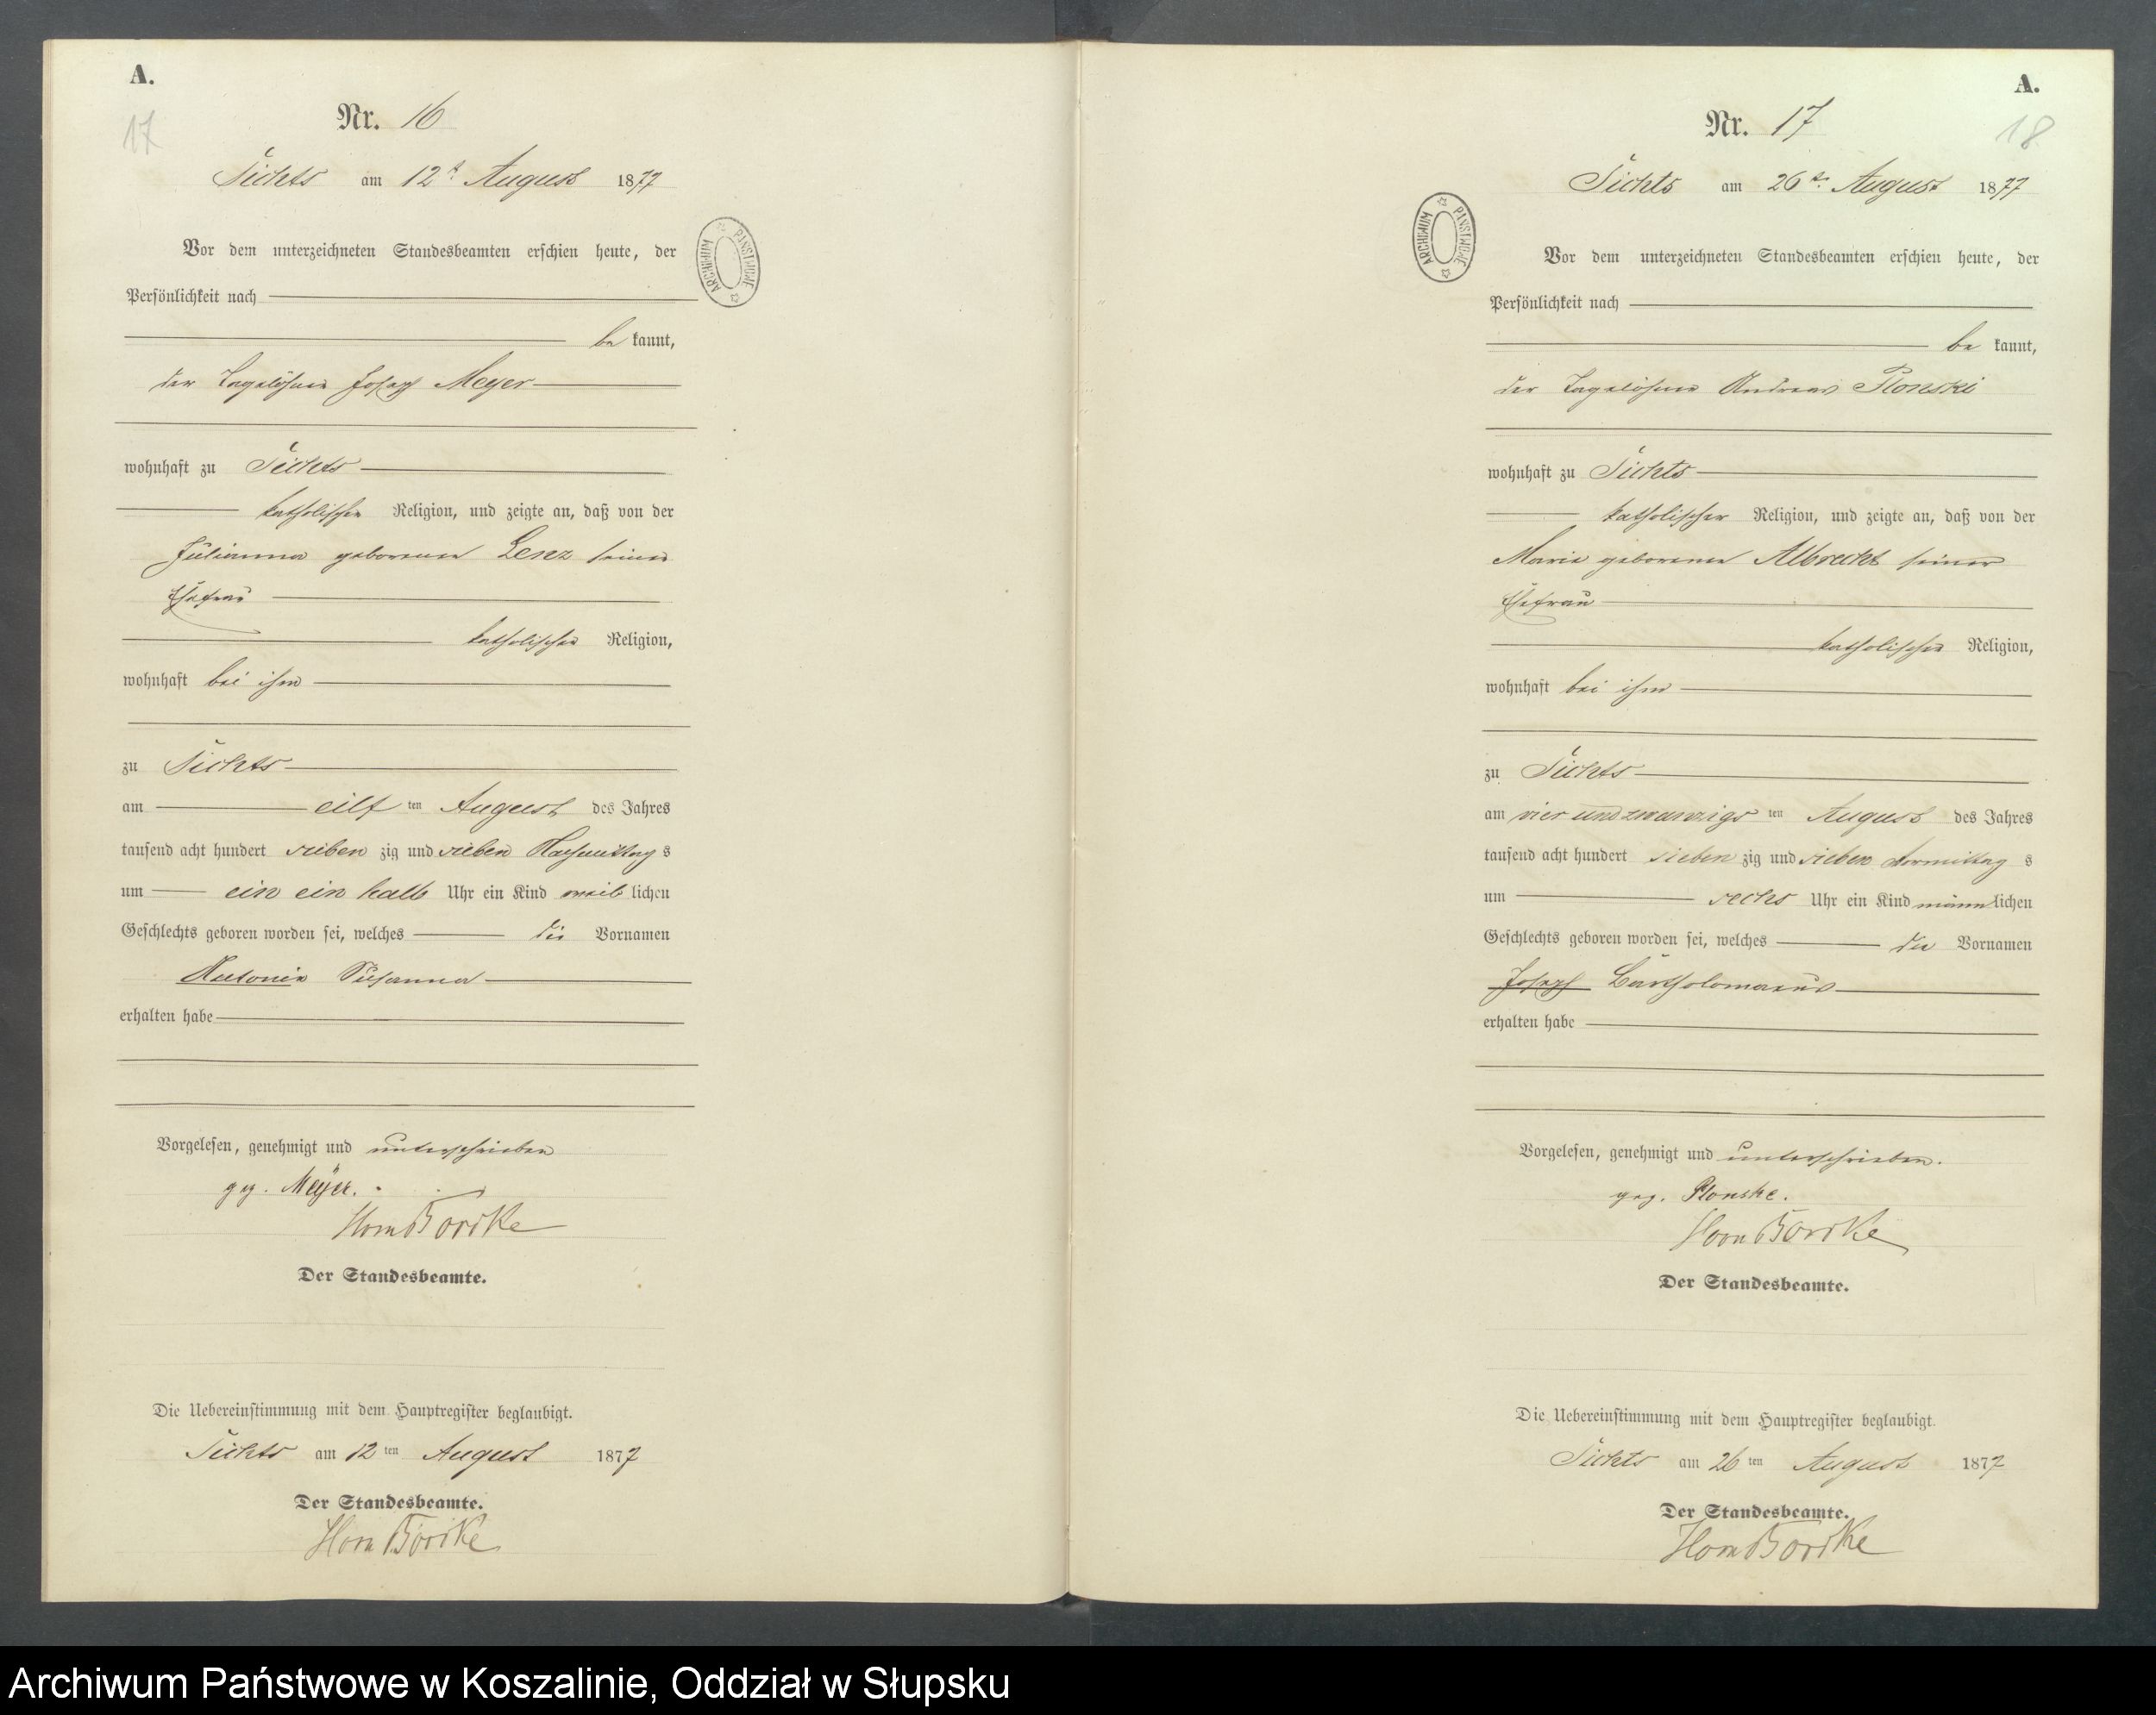 A.
17
Nr. 16
Tichts am 12t August 1877
Vor dem unterzeichneten Standesbeamten erschien heute, der
Persönlichkeit nach
be kannt,
der Tagelöhner Joseph Meyer
wohnhaft zu Tichts
katholischer Religion, und zeigte an, daß von der
Julianna geborenen Lenz seiner
Ehefrau
katholischer Religion,
wohnhaft bei ihm
zu Tichts
am eilf ten August des Jahres
tausend acht hundert sieben zig und sieben Nachmittag s
um ein ein halb Uhr ein Kind weib lichen
Geschlechts geboren worden sei, welches die Vornamen
Susanna
erhalten habe
Vorgelesen, genehmigt und unterschrieben
gez. Meyer.
Der Standesbeamte.
Die Uebereinstimmung mit dem Hauptregister beglaubigt.
Tichts am 12 ten August 1877
Der Standesbeamte.
ARCHIWUM PAŃSTWOWE
A.
18
Nr. 17
Tichts am 26t. August 1877
Vor dem unterzeichneten Standesbeamten erschien heute, der
Persönlichkeit nach
be kannt,
der Tagelöhner Andreas Plonski
wohnhaft zu Tichts
katholischer Religion, und zeigte an, daß von der
Marie geborenen Albrecht seiner
Ehefrau
katholischer Religion,
wohnhaft bei ihm
zu Tichts
am vier und zwanzigs ten August des Jahres
tausend acht hundert sieben zig und sieben Vormittag s
um sechs Uhr ein Kind männ lichen
Geschlechts geboren worden sei, welches die Vornamen
Joseph Bartholomaeus
erhalten habe
Vorgelesen, genehmigt und unterschrieben.
gez. Plonske.
Der Standesbeamte.
Die Uebereinstimmung mit dem Hauptregister beglaubigt.
Tichts am 26 ten August 1877
Der Standesbeamte.
ARCHIWUM PAŃSTWOWE
Archiwum Państwowe w Koszalinie, Oddział w Słupsku